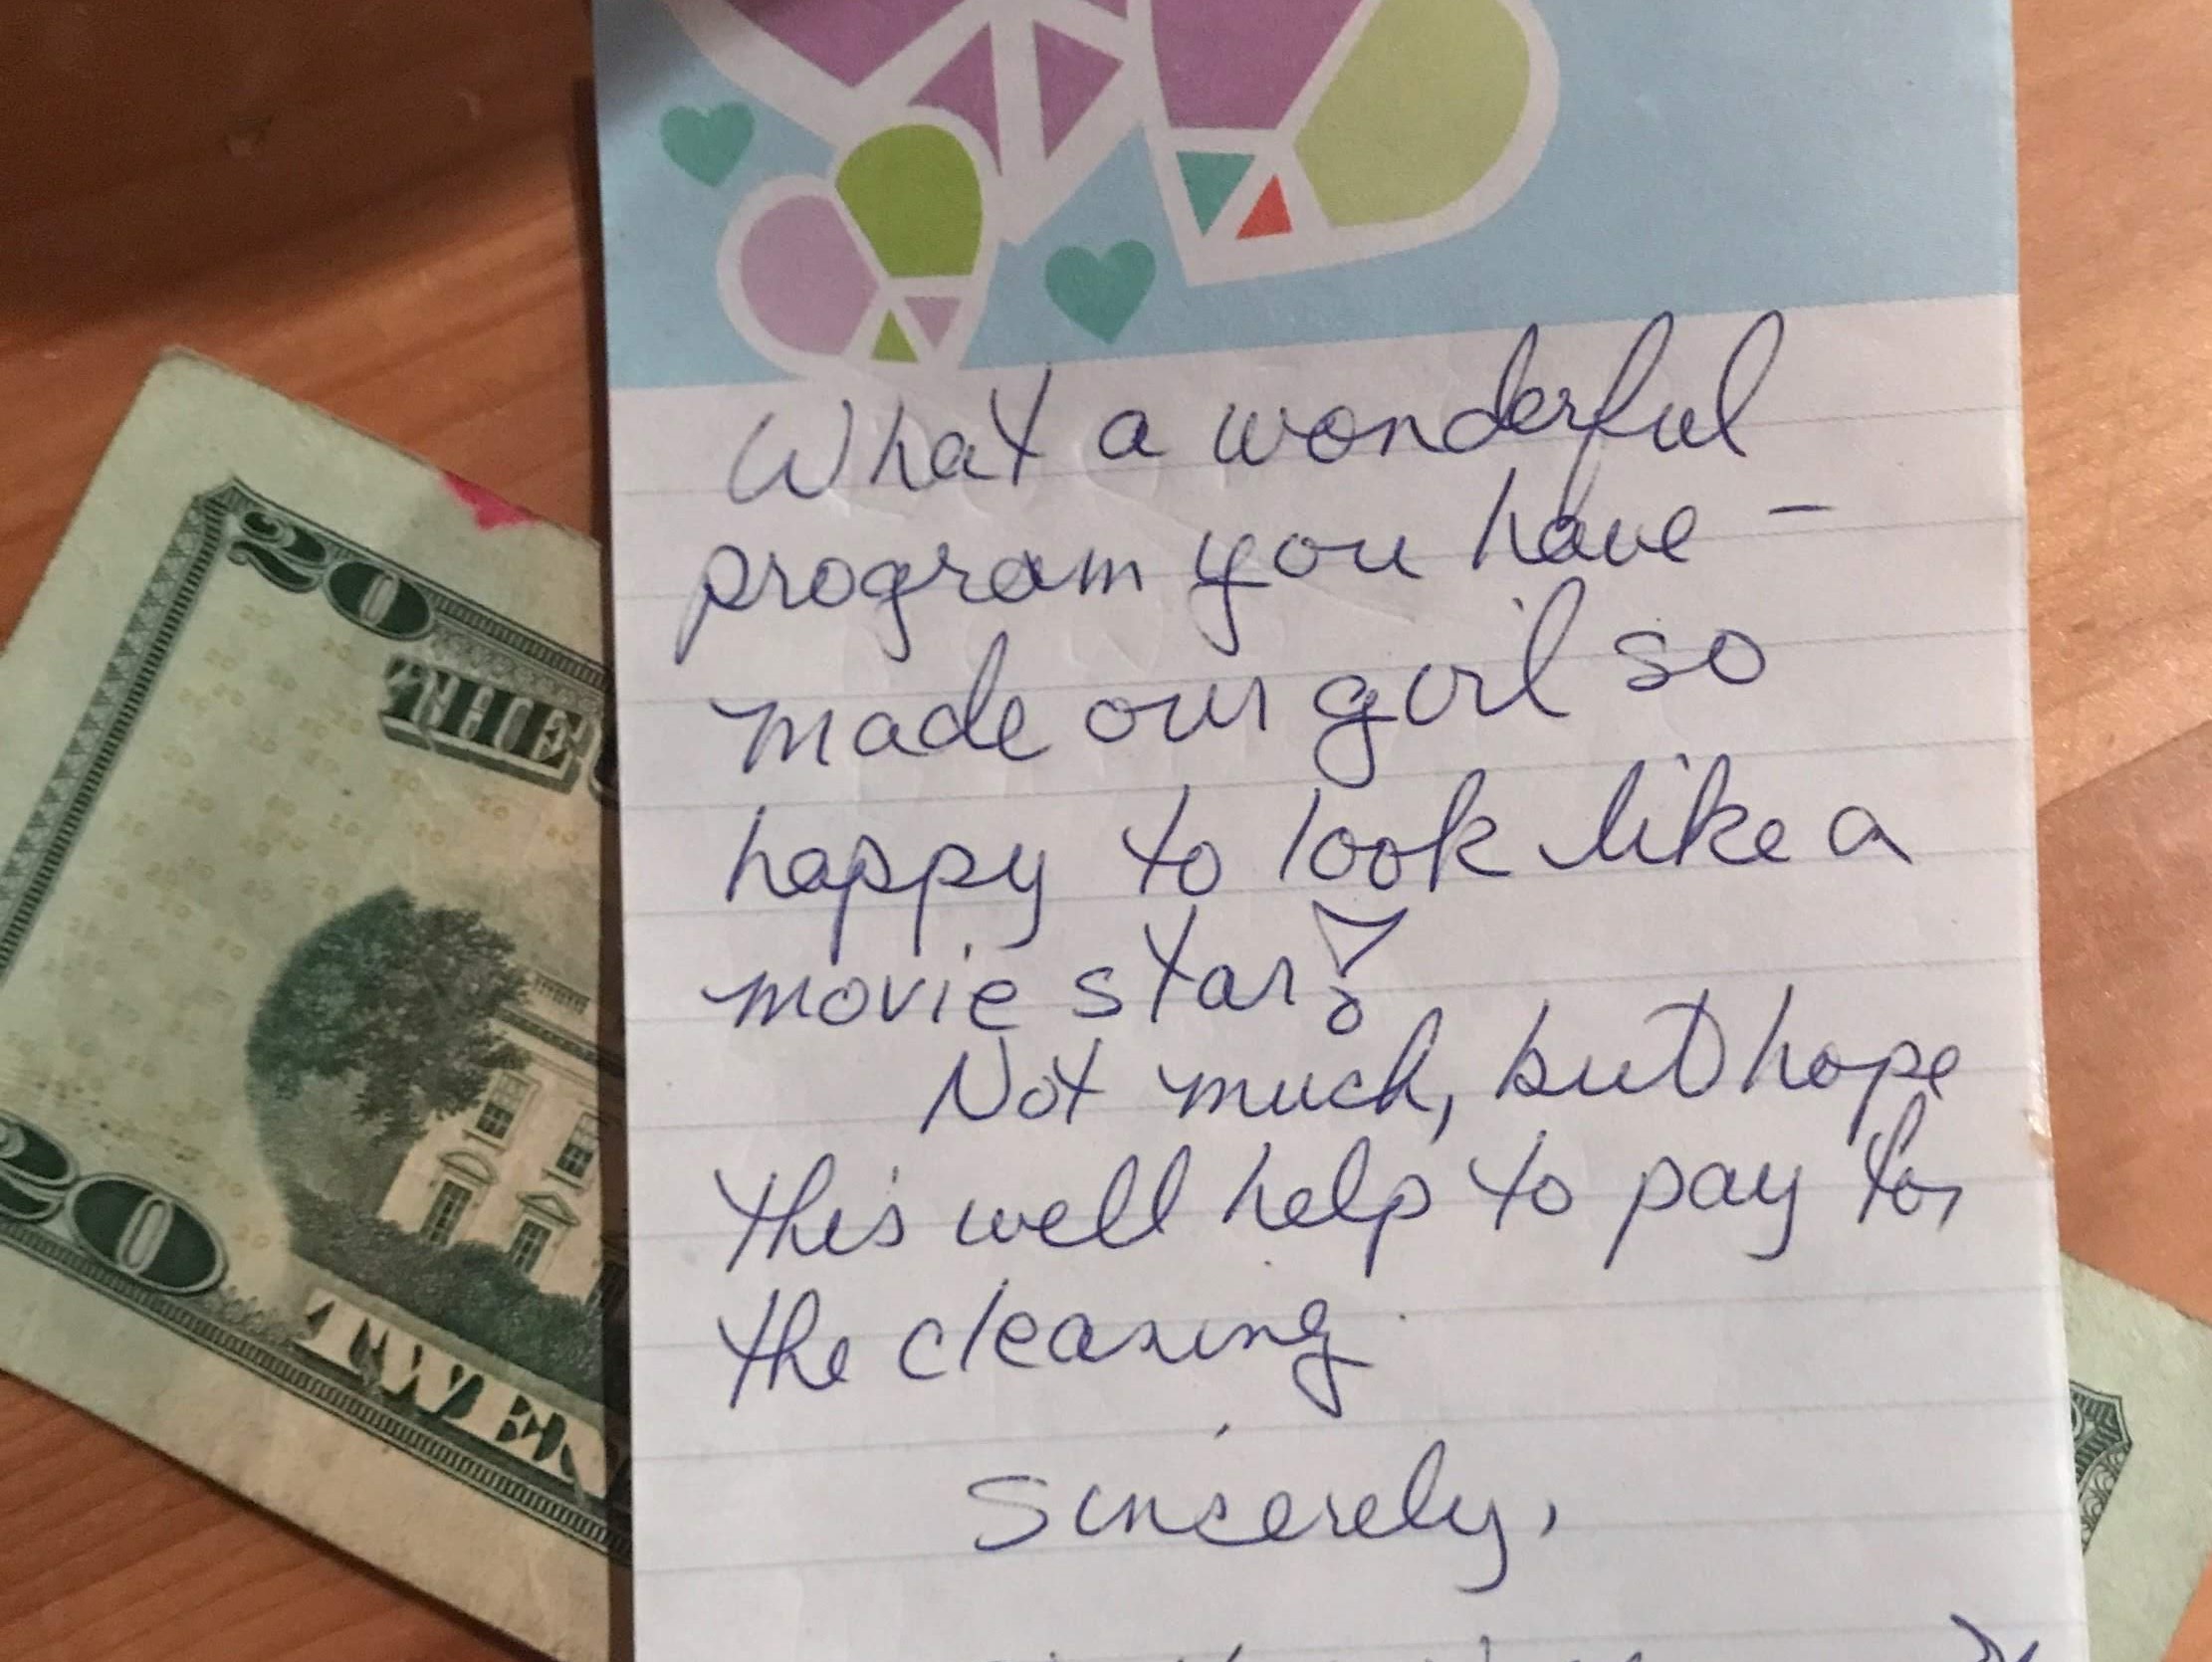 What a wonderful
program you have -
made our girl so
happy to look like a
movie star!
Not much, but hope
this well help to pay for
the cleaning.
Sincerely,
20
THE
20
TWEN